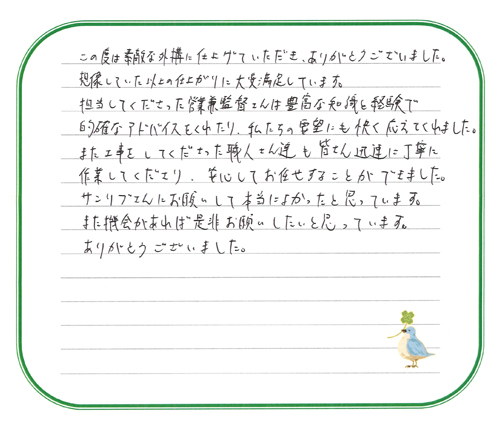 この度は素敵な外構に仕上げていただき、ありがとうございました。
想像していた以上の仕上がりに大変満足しています。
担当してくださった営業兼監督さんは豊富な知識と経験で
的確なアドバイスをくれたり、私たちの要望にも快く応えてくれました。
また工事をしてくださった職人さん達も皆さん迅速に丁寧に
作業してくださり、安心してお任せすることができました。
サンリブさんにお願いして本当によかったと思っています。
また機会があれば是非お願いしたいと思っています。
ありがとうございました。